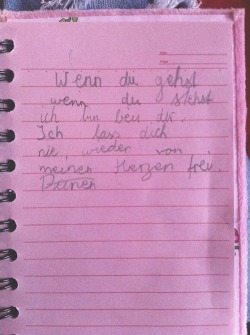 Wenn du gehst
wenn du siehst
ich bin beu dir.
Ich lass dich
nie, wieder von
meinen Herzen frei.